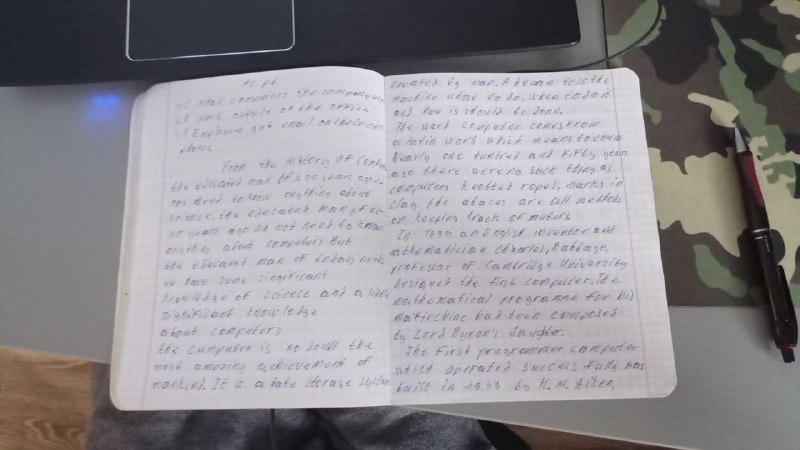 PC p6
2) What computers the company
2) work outside of the office
3) Employees get email on their cell
phones.
From the History of Comp
the educated man of 200 years ago
not need to know anything about
science. the educated man of
50 years ago did not need to know
anything about computers. But
the educated man of today needs
to have some significant
knowledge of science and a little
significant knowledge
about computers
the Cumputer is no doubt the
most amazing achievement of
mankind. It is a date storage system
created by man. A human tells the
machine what to do, when to do it
and how is should be done.
The word computer comes from
a latin word which means to count
Nearly one hundred and fifty years
ago there were no such thing as
computers knotted ropes, marks in
clay, the abacus are all methods
of keeping track of
In an English inventor and
mathematician Charles, Babbage,
professor of Cambridge University
designed the first computer. The
mathematical programme for his
had been composed
by Lord Byron's daughter.
The first programmer computer
which operated successfully was
built in by H. M. Aiken,